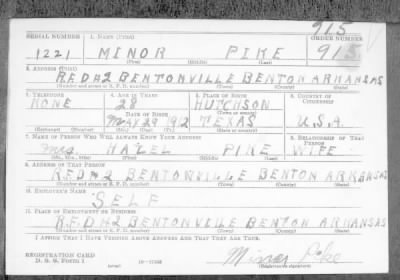 915
SERIAL NUMBER 1. NAME (Print) ORDER NUMBER
1221 MINOR PIKE 915
(First) (Middle) (Last)
2. ADDRESS (Print)
R.F.D #2 BENTONVILLE BENTON ARKANSAS
(Number and street or R. F. D. number) (Town) (County) (State)
3. TELEPHONE 4. AGE IN YEARS 5. PLACE OF BIRTH 6. COUNTRY OF CITIZENSHIP
NONE 28 HUTCHSON
DATE OF BIRTH (Town or county)
MAY 28 1912 TEXAS U.S.A.
(Exchange) (Number) (Mo.) (Day) (Yr.) (State or country)
7. NAME OF PERSON WHO WILL ALWAYS KNOW YOUR ADDRESS 8. RELATIONSHIP OF THAT PERSON
Mrs HAZEL PIKE WIFE
(Mr., Mrs., Miss) (First) (Middle) (Last)
9. ADDRESS OF THAT PERSON
R.F.D #2 BENTONVILLE BENTON ARKANSAS
(Number and street or R. F. D. number) (Town) (County) (State)
10. EMPLOYER'S NAME
SELF
11. PLACE OF EMPLOYMENT OR BUSINESS
R.F.D #2 BENTONVEILE BENTON ARKANSAS
(Number and street or R. F. D. number) (Town) (County) (State)
I AFFIRM THAT I HAVE VERIFIED ABOVE ANSWERS AND THAT THEY ARE TRUE.
REGISTRATION CARD
D. S. S. Form 1 Minor Pike
(Registrant's signature)